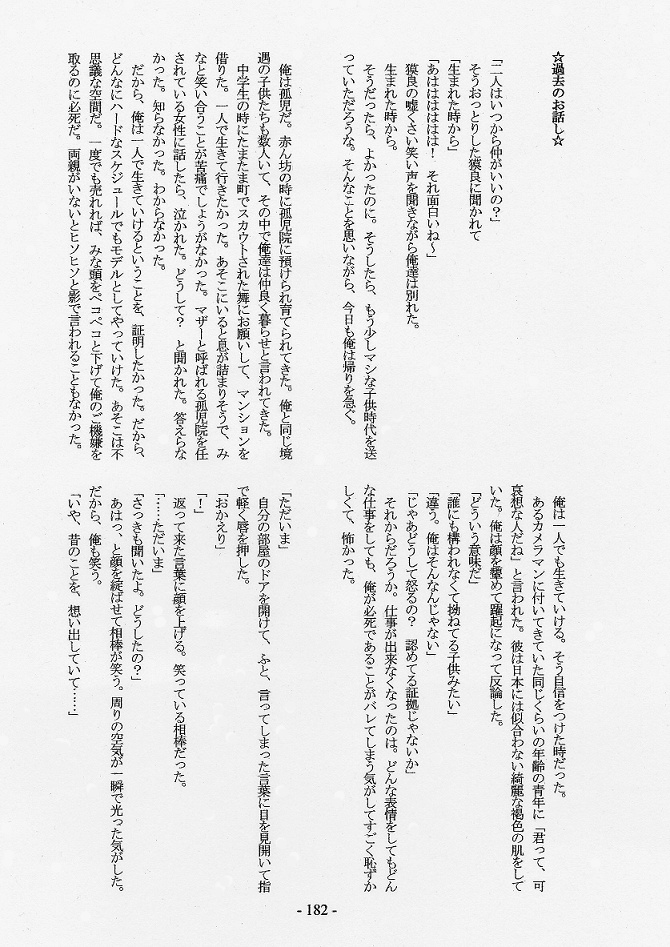 ☆過去のお話し☆
「二人はいつから仲がいいの？」
そうおっとりした獏良に聞かれて
「生まれた時から」
「あはははははは！　それ面白いね～」
獏良の嘘くさい笑い声を聞きながら俺達は別れた。
生まれた時から。
そうだったら、よかったのに。そうしたら、もう少しマシな子供時代を送
っていただろうな。そんなことを思いながら、今日も俺は帰りを急ぐ。
俺は孤児だ。赤ん坊の時に孤児院に預けられ育てられてきた。俺と同じ境
遇の子供たちも数人いて、その中で俺達は仲良く暮らせと言われてきた。
中学生の時にたまたま町でスカウトされた舞にお願いして、マンションを
借りた。一人で生きて行きたかった。あそこにいると息が詰まりそうで、み
なと笑い合うことが苦痛でしょうがなかった。マザーと呼ばれる孤児院を任
されている女性に話したら、泣かれた。どうして？　と聞かれた。答えらな
かった。知らなかった。わからなかった。
だから、俺は一人で生きていけるということを、証明したかった。だから、
どんなにハードなスケジュールでもモデルとしてやっていけた。あそこは不
思議な空間だ。一度でも売れれば、みな頭をペコペコと下げて俺のご機嫌を
取るのに必死だ。両親がいないとヒソヒソと影で言われることもなかった。
俺は一人でも生きていける。そう自信をつけた時だった。
あるカメラマンに付いてきていた同じくらいの年齢の青年に「君って、可
哀想な人だね」と言われた。彼は日本には似合わない綺麗な褐色の肌をして
いた。俺は顔を顰めて躍起になって反論した。
「どういう意味だ」
「誰にも構われなくて拗ねてる子供みたい」
「違う。俺はそんなんじゃない」
「じゃあどうして怒るの？　認めてる証拠じゃないか」
それからだろうか。仕事が出来なくなったのは。どんな表情をしてもどん
な仕事をしても、俺が必死であることがバレてしまう気がしてすごく恥ずか
しくて、怖かった。
「ただいま」
自分の部屋のドアを開けて、ふと、言ってしまった言葉に目を見開いて指
で軽く唇を押した。
「おかえり」
「！」
返って来た言葉に顔を上げる。笑っている相棒だった。
「……ただいま」
「さっきも聞いたよ。どうしたの？」
あはっ、と顔を綻ばせて相棒が笑う。周りの空気が一瞬で光った気がした。
だから、俺も笑う。
「いや、昔のことを、想い出していて……」
- 182 -